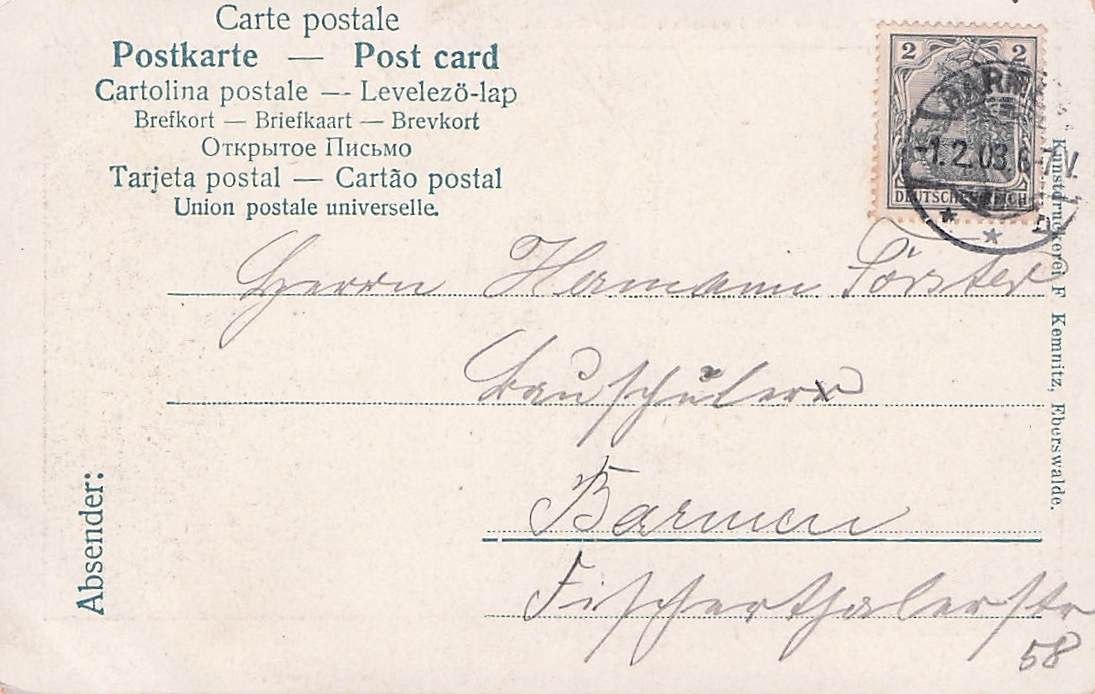 Carte postale
Postkarte — Post card
Cartolina postale — Levelezö-lap
Brefkort — Briefkaart — Brevkort
Открытое Письмо
Tarjeta postal — Cartão postal
Union postale universelle.
2 2
DEUTSCHES REICH
BARM
-1.2.03.6-7V.
Herrn Hermann Förster
Bauschüler
Barmen
Fischerthalerstr
58
Absender:
Kunstdruckerei F Kemnitz, Eberswalde.